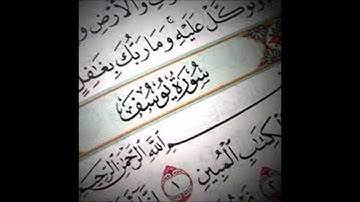 وَالْأَرْضِ وَ
وَتَوَكَّلْ عَلَيْهِ وَمَا رَبُّكَ بِغَافِلٍ
سُورَةُ يُوسُفَ
بِسْمِ اللَّهِ الرَّحْمَٰنِ الرَّحِيمِ
الْكِتَابِ الْمُبِينِ ١